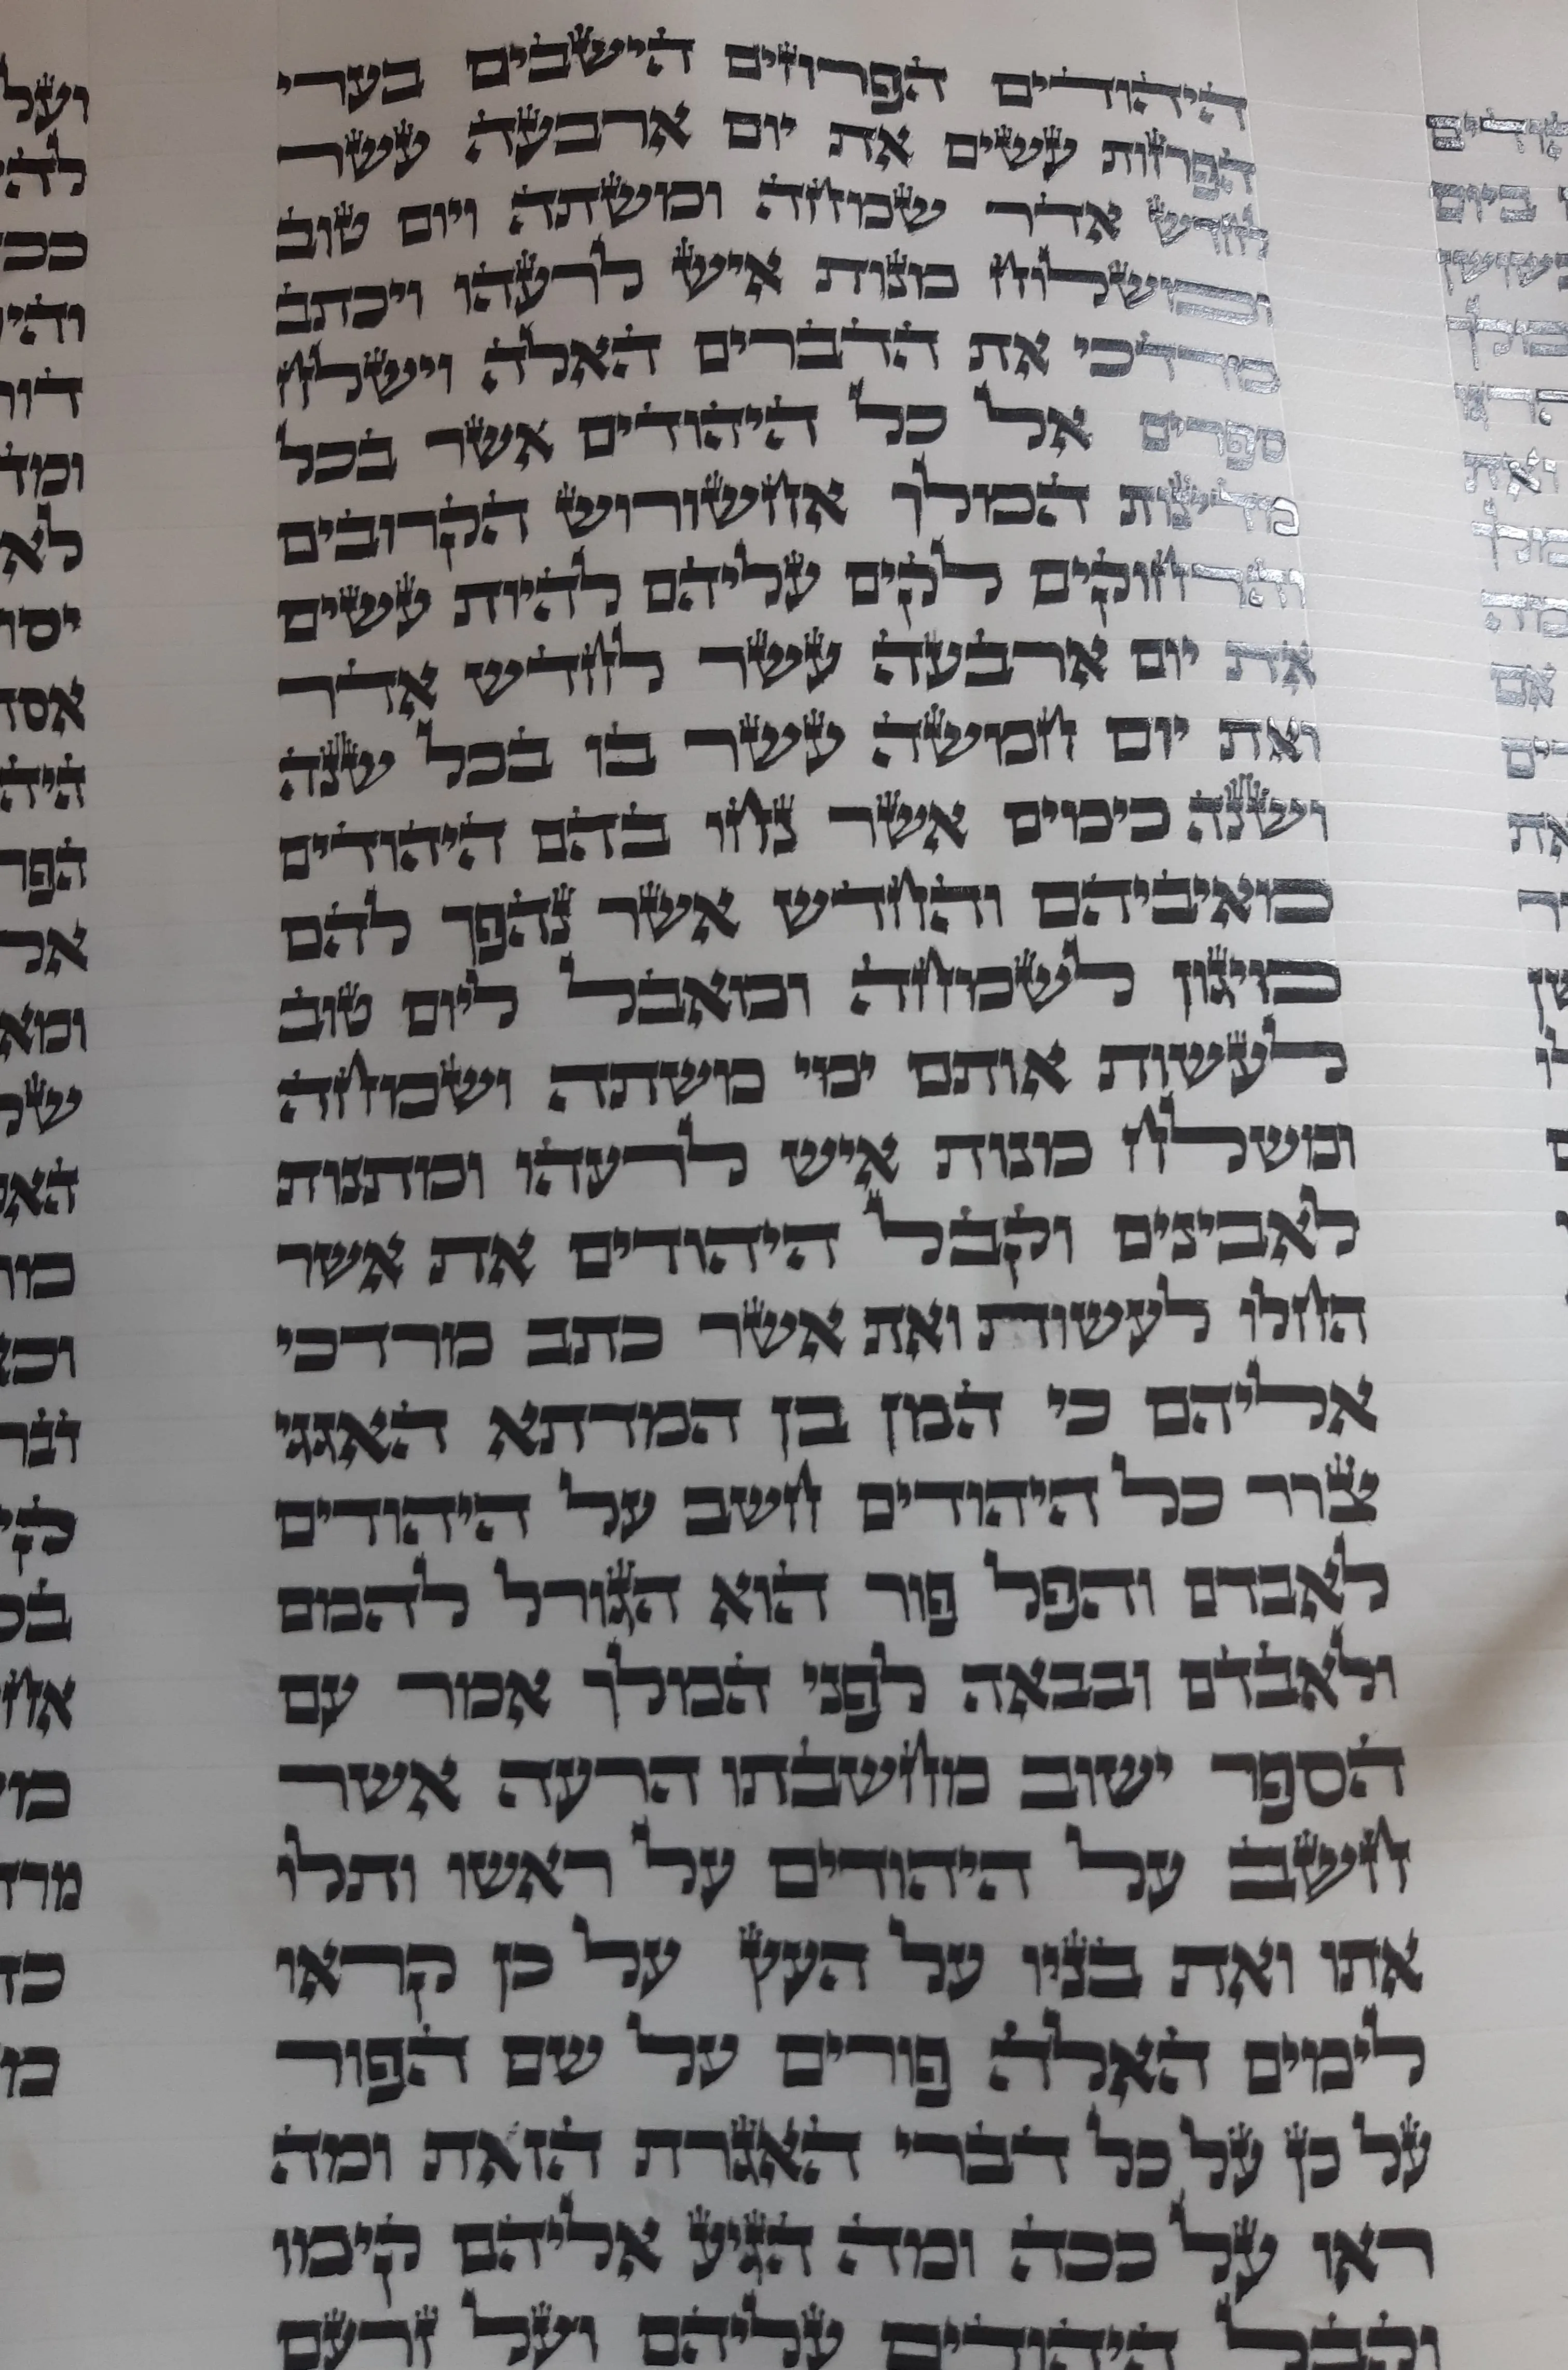 היהודים הפרוזים הישבים בערי
הפרזות עשים את יום ארבעה עשר
לחדש אדר שמחה ומשתה ויום טוב
ומשלוח מנות איש לרעהו ויכתב
מרדכי את הדברים האלה וישלח
ספרים אל כל היהודים אשר בכל
מדינות המלך אחשורוש הקרובים
והרחוקים לקים עליהם להיות עשים
את יום ארבעה עשר לחדש אדר
ואת יום חמשה עשר בו בכל שנה
ושנה כימים אשר נחו בהם היהודים
מאיביהם והחדש אשר נהפך להם
מיגון לשמחה ומאבל ליום טוב
לעשות אותם ימי משתה ושמחה
ומשלח מנות איש לרעהו ומתנות
לאבינים וקבל היהודים את אשר
החלו לעשות ואת אשר כתב מרדכי
אליהם כי המן בן המדתא האגגי
צרר כל היהודים חשב על היהודים
לאבדם והפל פור הוא הגורל להמם
ולאבדם ובבאה לפני המלך אמר עם
הספר ישוב מחשבתו הרעה אשר
חשב על היהודים על ראשו ותלו
אתו ואת בניו על העץ על כן קראו
לימים האלה פורים על שם הפור
על כן על כל דברי האגרת הזאת ומה
ראו על ככה ומה הגיע אליהם קימו
וקבל היהודים עליהם ועל זרעם